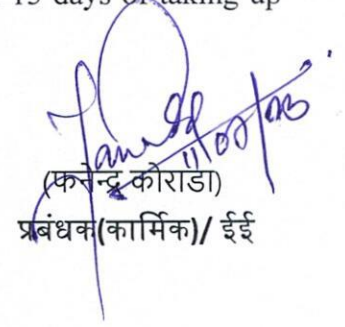 15 days of taking up
(फनेन्द्र कोराडा)
प्रबंधक(कार्मिक)/ ईई